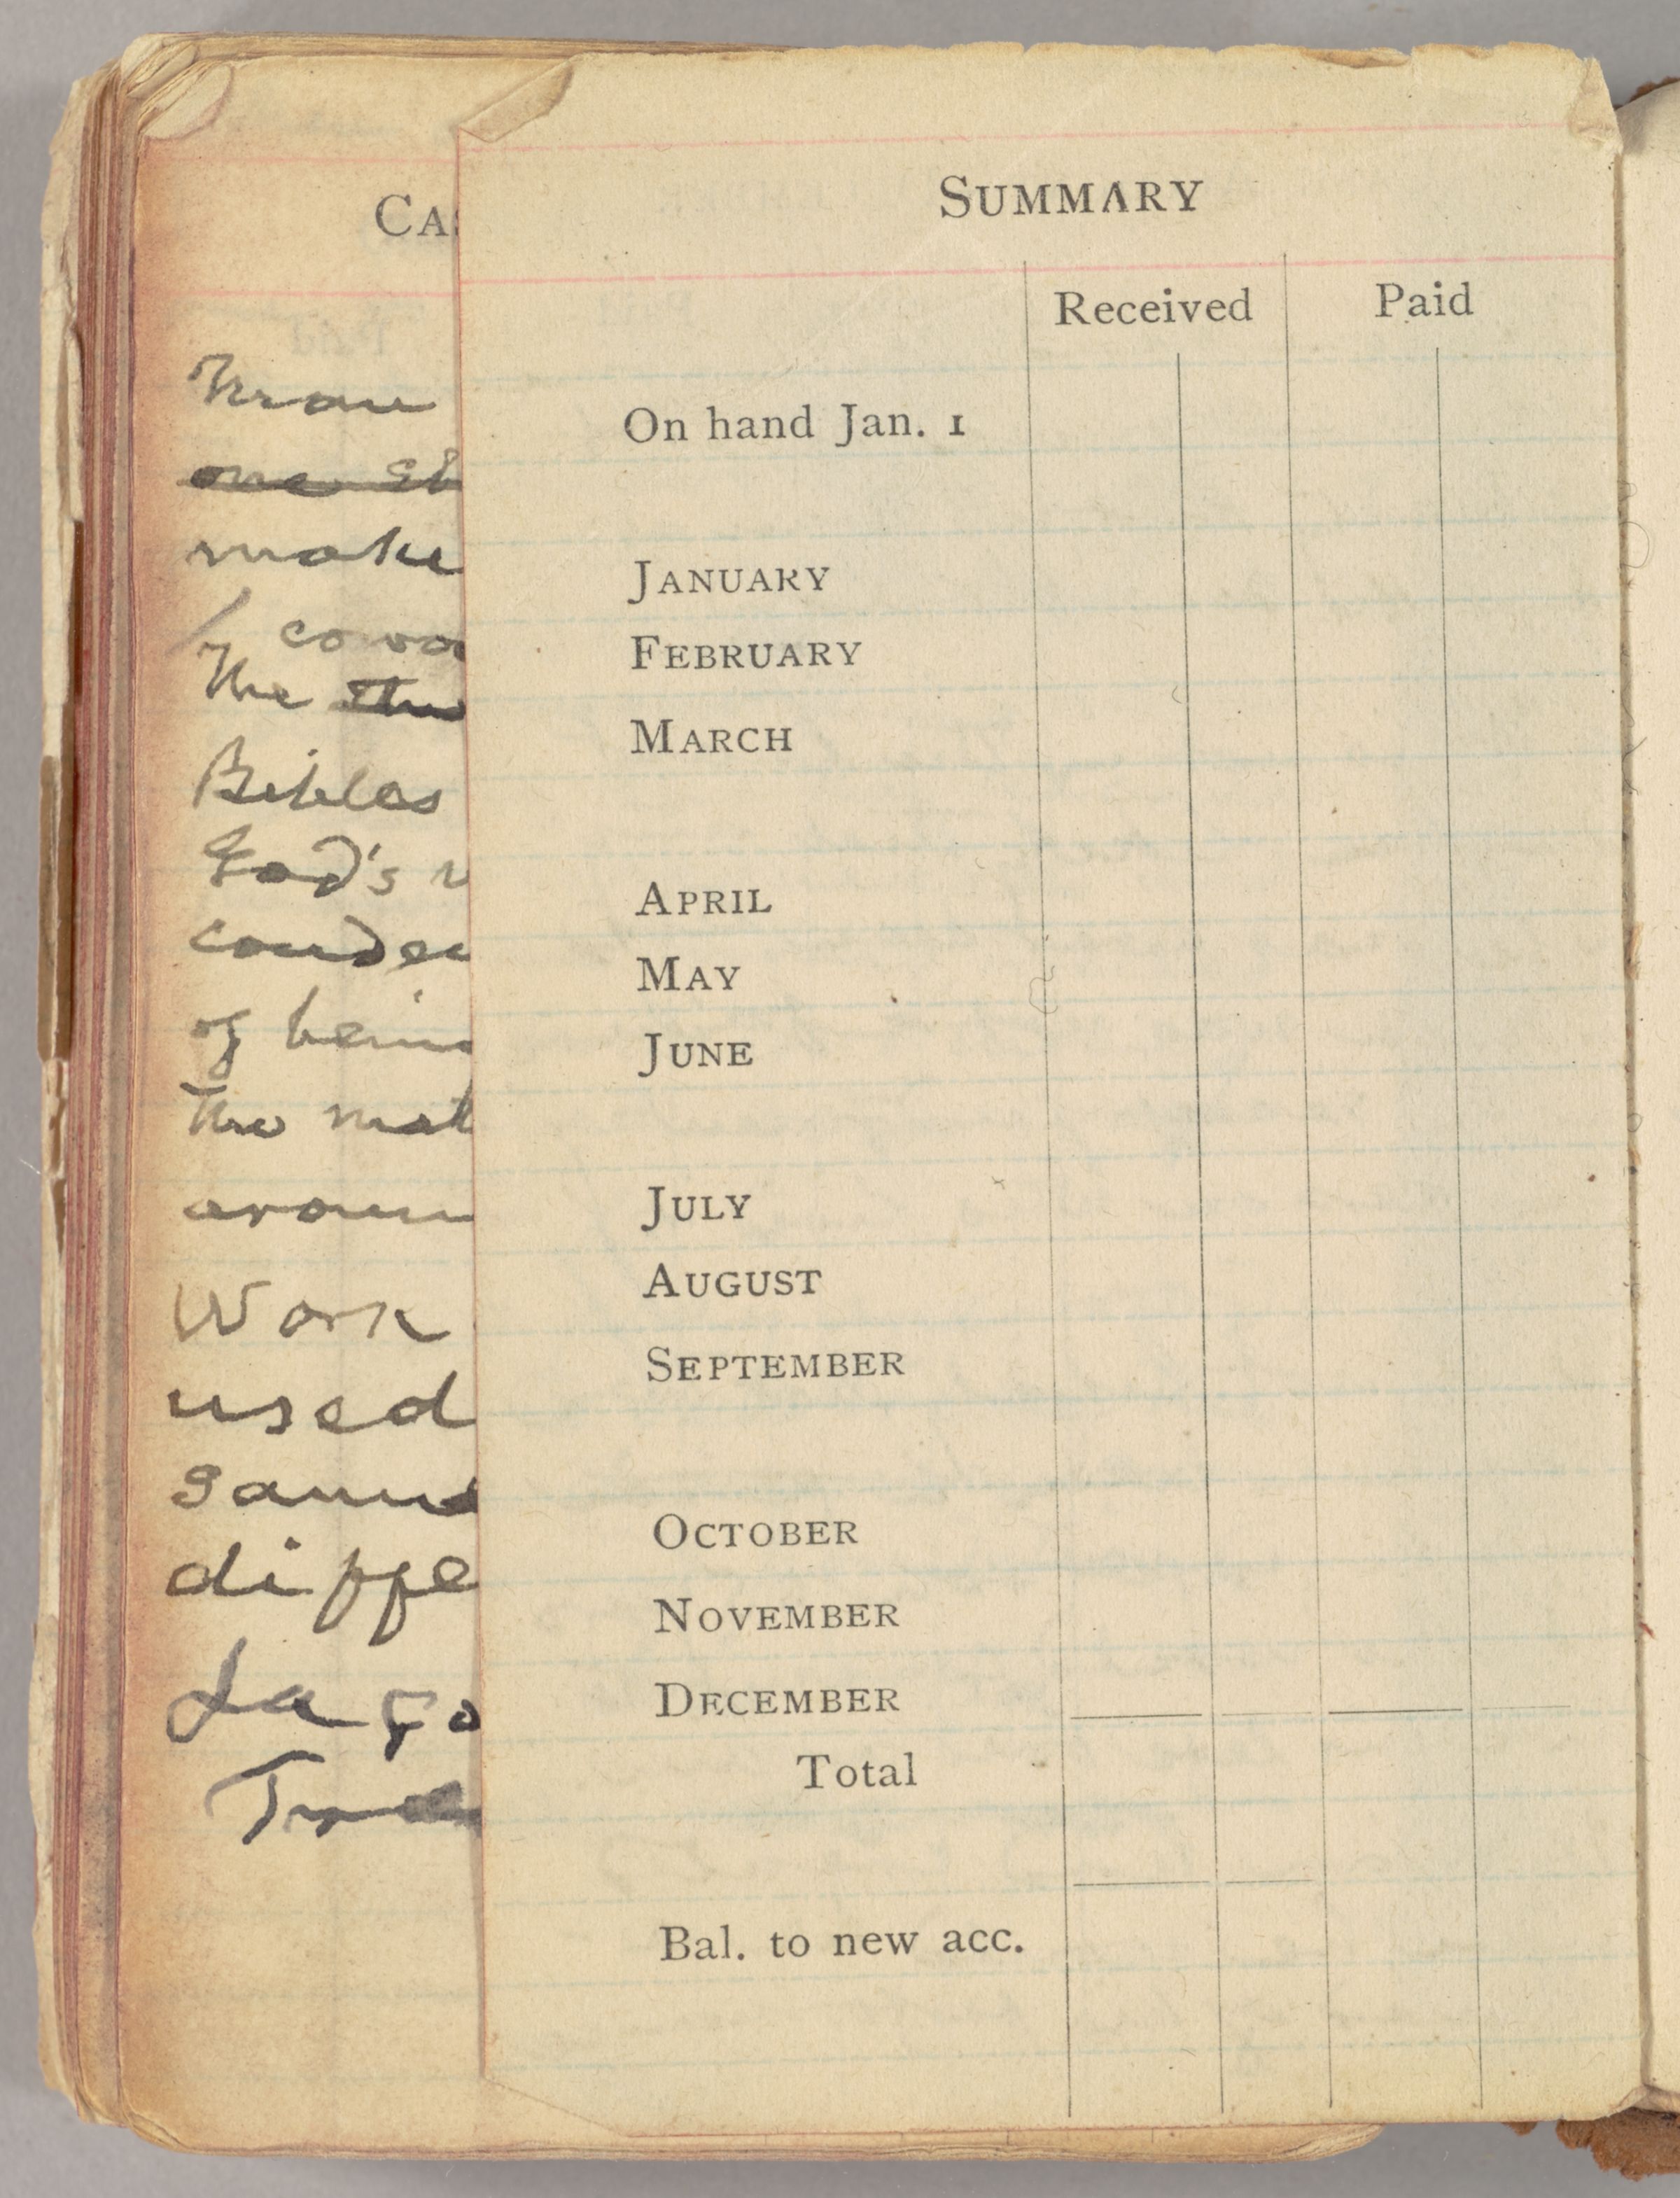 CAS
throw
one st
make
by cowa
the stu
Bibles
God's w
conden
of being
the mat
aroun
Work
used
same
diffe
La go
SUMMARY
Received Paid
On hand Jan. 1
JANUARY
FEBRUARY
MARCH
APRIL
MAY
JUNE
JULY
AUGUST
SEPTEMBER
OCTOBER
NOVEMBER
DECEMBER
Total
Bal. to new acc.